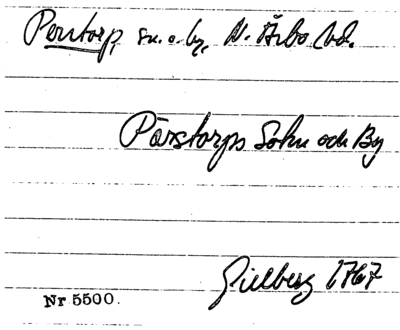 Perstorp, sn. o. by, N. Åsbo hd.
Pärstorps Sokn och By
Gillberg 1767
Nr 5500.